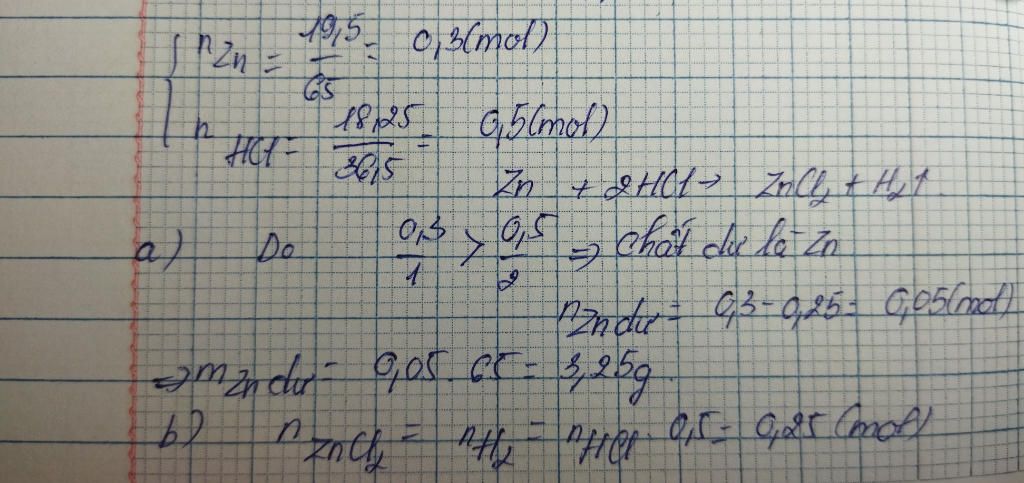 { n Zn = 19,5/65 = 0,3(mol)
n HCl = 18,25/36,5 = 0,5(mol)
Zn + 2HCl → ZnCl₂ + H₂↑
a) Do 0,3/1 > 0,5/2 ⇒ Chất dư là Zn
n Zn dư = 0,3 - 0,25 = 0,05(mol)
⇒ m Zn dư = 0,05 . 65 = 3,25g
b) n ZnCl₂ = n H₂ = n HCl . 0,5 = 0,25 (mol)